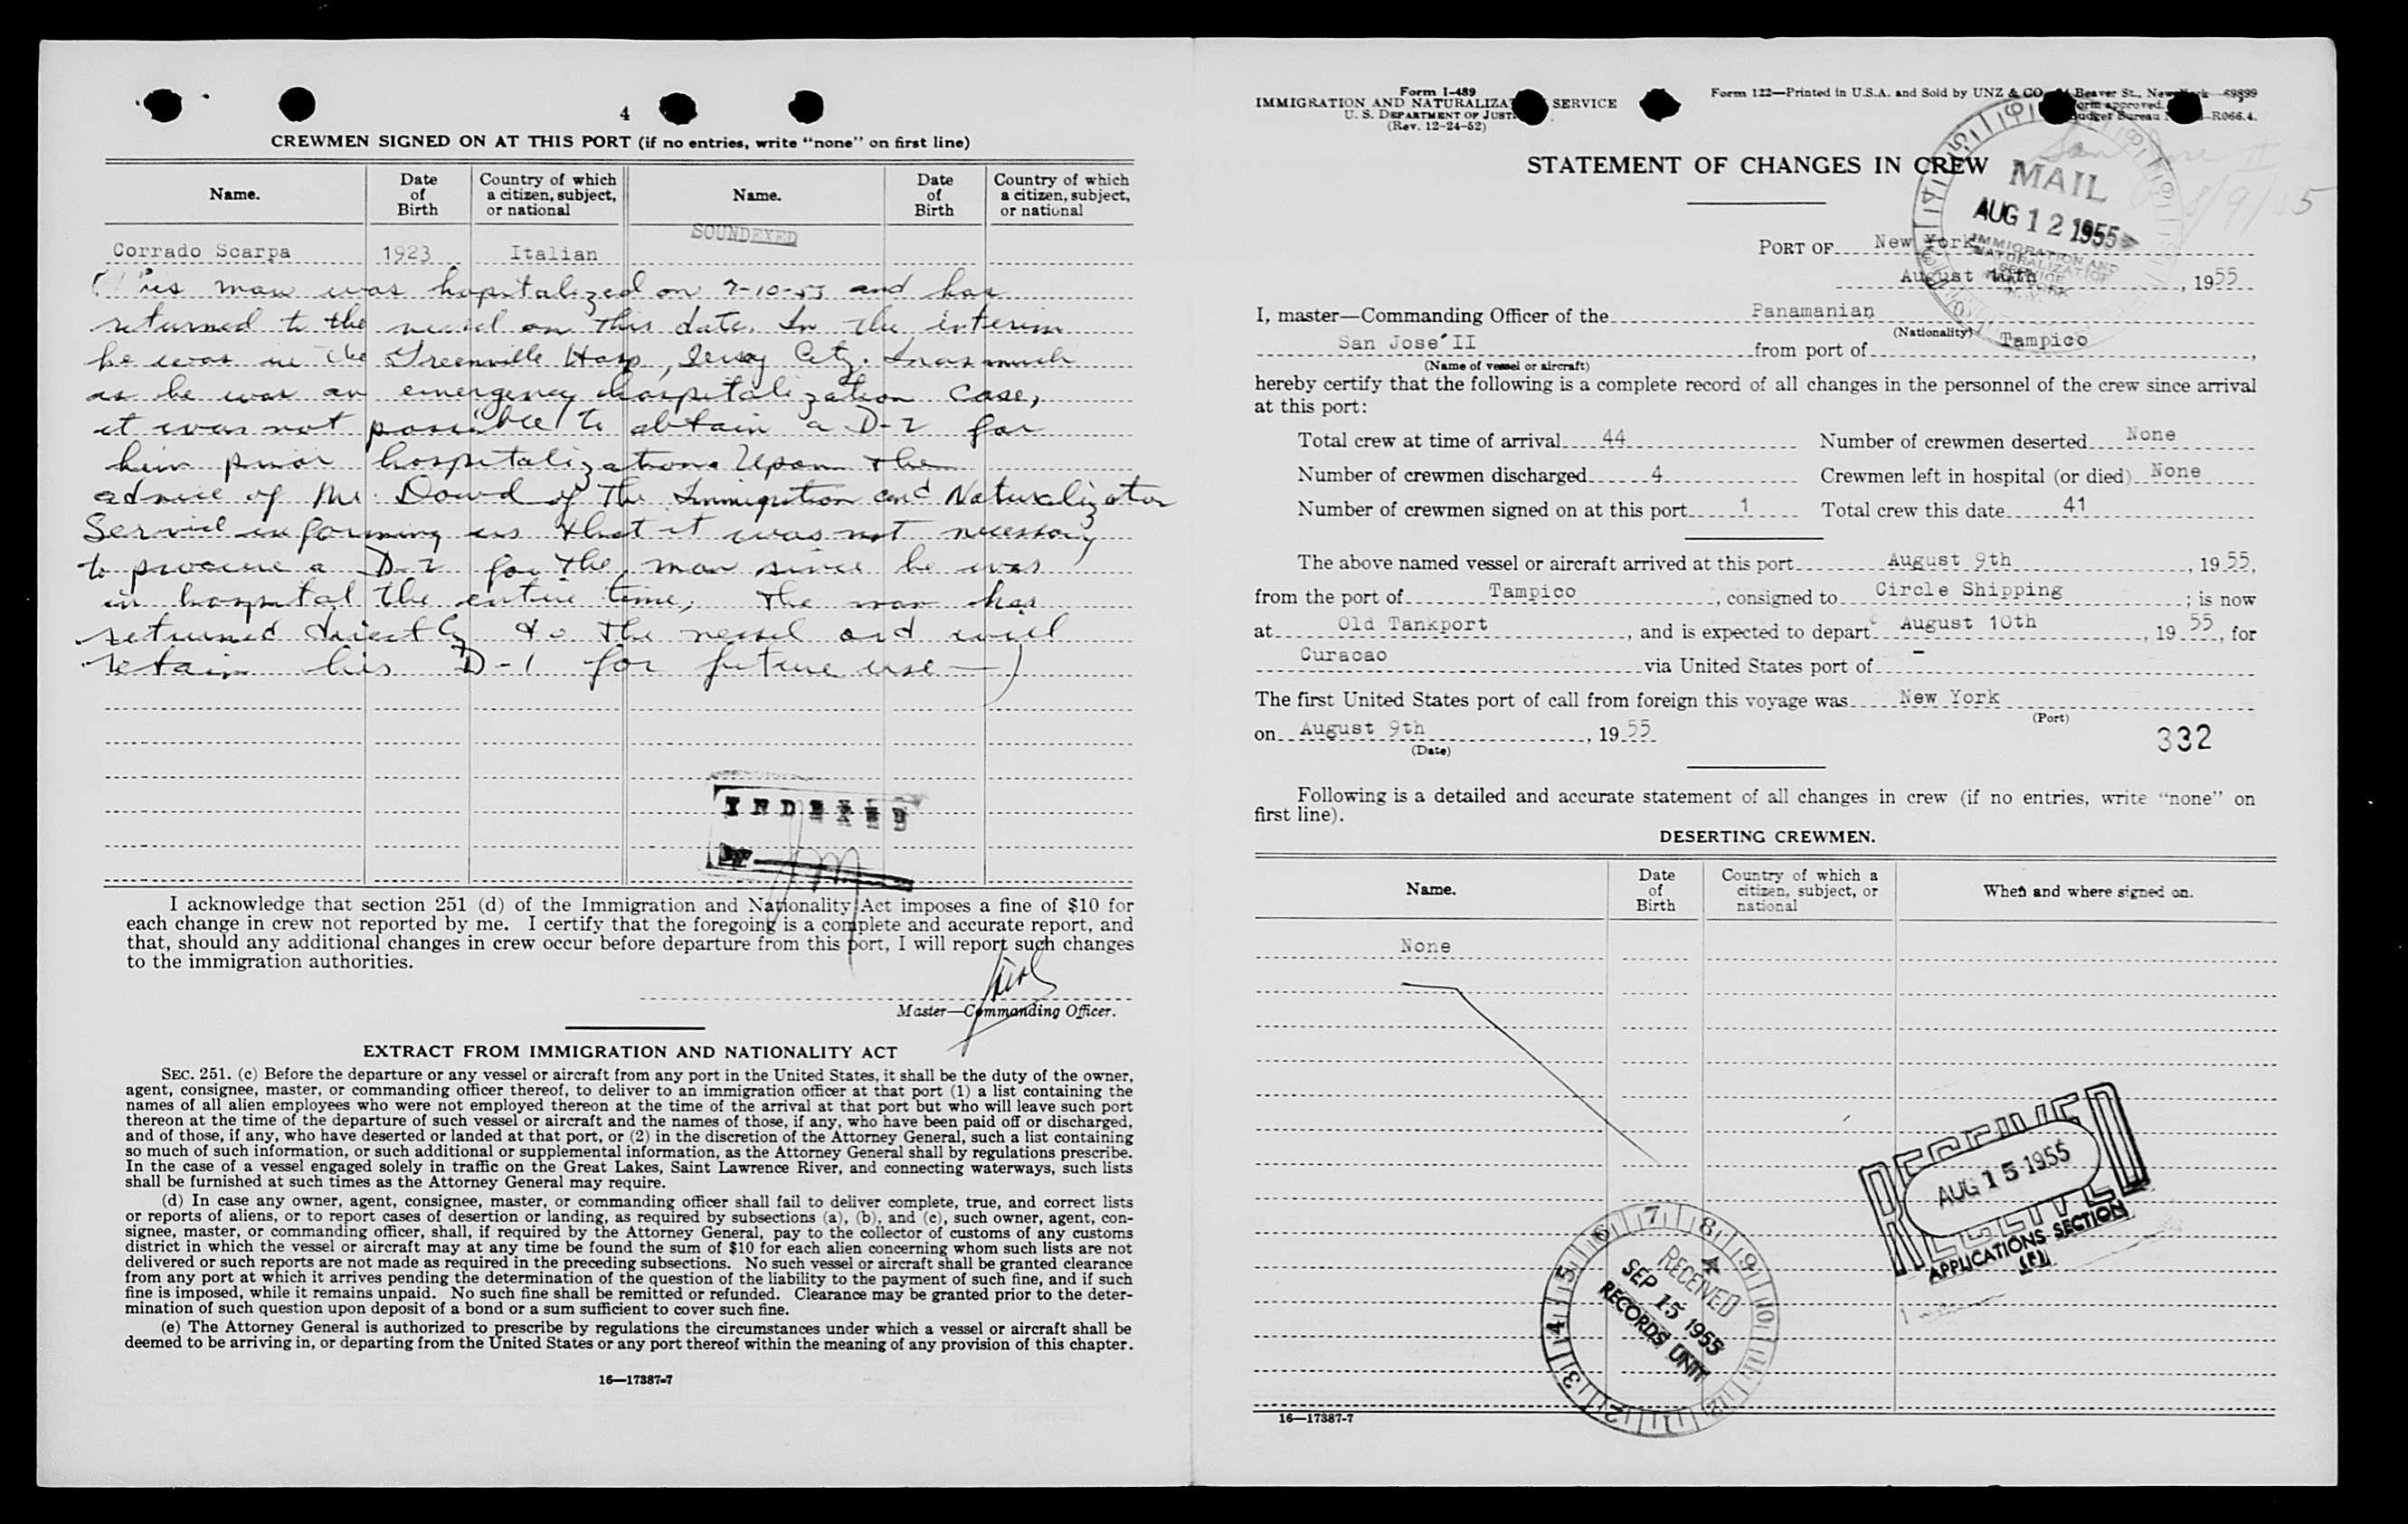 4
CREWMEN SIGNED ON AT THIS PORT (if no entries, write "none" on first line)
Name. Date of Birth Country of which a citizen, subject, or national Name. Date of Birth Country of which a citizen, subject, or national
SOUNDEXED
Corrado Scarpa 1923 Italian
(This man was hospitalized on 7-10-55 and has
returned to the vessel on this date. In the interim
he was in the Greenville Hosp, Jersey City. Inasmuch
as he was an emergency hospitalization case,
it was not possible to obtain a D-2 for
him prior hospitalization. Upon the
advice of Mr. Dowd of The Immigration and Naturalization
Service informing us that it was not necessary
to procure a D-2 for the man since he was
in hospital the entire time, the man has
returned directly to the vessel and will
retain his D-1 for future use—)
INDEXED
I acknowledge that section 251 (d) of the Immigration and Nationality Act imposes a fine of $10 for
each change in crew not reported by me. I certify that the foregoing is a complete and accurate report, and
that, should any additional changes in crew occur before departure from this port, I will report such changes
to the immigration authorities.
Master—Commanding Officer.
EXTRACT FROM IMMIGRATION AND NATIONALITY ACT
SEC. 251. (c) Before the departure or any vessel or aircraft from any port in the United States, it shall be the duty of the owner,
agent, consignee, master, or commanding officer thereof, to deliver to an immigration officer at that port (1) a list containing the
names of all alien employees who were not employed thereon at the time of the arrival at that port but who will leave such port
thereon at the time of the departure of such vessel or aircraft and the names of those, if any, who have been paid off or discharged,
and of those, if any, who have deserted or landed at that port, or (2) in the discretion of the Attorney General, such a list containing
so much of such information, or such additional or supplemental information, as the Attorney General shall by regulations prescribe.
In the case of a vessel engaged solely in traffic on the Great Lakes, Saint Lawrence River, and connecting waterways, such lists
shall be furnished at such times as the Attorney General may require.
(d) In case any owner, agent, consignee, master, or commanding officer shall fail to deliver complete, true, and correct lists
or reports of aliens, or to report cases of desertion or landing, as required by subsections (a), (b), and (c), such owner, agent, con-
signee, master, or commanding officer, shall, if required by the Attorney General, pay to the collector of customs of any customs
district in which the vessel or aircraft may at any time be found the sum of $10 for each alien concerning whom such lists are not
delivered or such reports are not made as required in the preceding subsections. No such vessel or aircraft shall be granted clearance
from any port at which it arrives pending the determination of the question of the liability to the payment of such fine, and if such
fine is imposed, while it remains unpaid. No such fine shall be remitted or refunded. Clearance may be granted prior to the deter-
mination of such question upon deposit of a bond or a sum sufficient to cover such fine.
(e) The Attorney General is authorized to prescribe by regulations the circumstances under which a vessel or aircraft shall be
deemed to be arriving in, or departing from the United States or any port thereof within the meaning of any provision of this chapter.
16—17387-7
Form I-489
IMMIGRATION AND NATURALIZAT SERVICE
U. S. DEPARTMENT OF JUST
(Rev. 12-24-52)
Form 122—Printed in U.S.A. and Sold by UNZ & CO Beaver St., New York 69899
Form approved.
Budget Bureau -R066.4.
San Jose II
8/9/55
STATEMENT OF CHANGES IN CREW
MAIL
AUG 12 1955
IMMIGRATION AND
NATURALIZATION
SERVICE
PORT OF New York
August 10th, 1955
I, master—Commanding Officer of the Panamanian
(Nationality)
San Jose' II from port of Tampico,
(Name of vessel or aircraft)
hereby certify that the following is a complete record of all changes in the personnel of the crew since arrival
at this port:
Total crew at time of arrival 44 Number of crewmen deserted None
Number of crewmen discharged 4 Crewmen left in hospital (or died) None
Number of crewmen signed on at this port 1 Total crew this date 41
The above named vessel or aircraft arrived at this port August 9th, 1955,
from the port of Tampico, consigned to Circle Shipping; is now
at Old Tankport, and is expected to depart August 10th, 1955, for
Curacao via United States port of -
The first United States port of call from foreign this voyage was New York
(Port)
on August 9th, 1955
(Date)
332
Following is a detailed and accurate statement of all changes in crew (if no entries, write "none" on
first line).
DESERTING CREWMEN.
Name. Date of Birth Country of which a citizen, subject, or national When and where signed on.
None
RECEIVED
AUG 15 1955
APPLICATIONS SECTION
RECEIVED
SEP 15 1955
RECORDS UNIT
16—17387-7